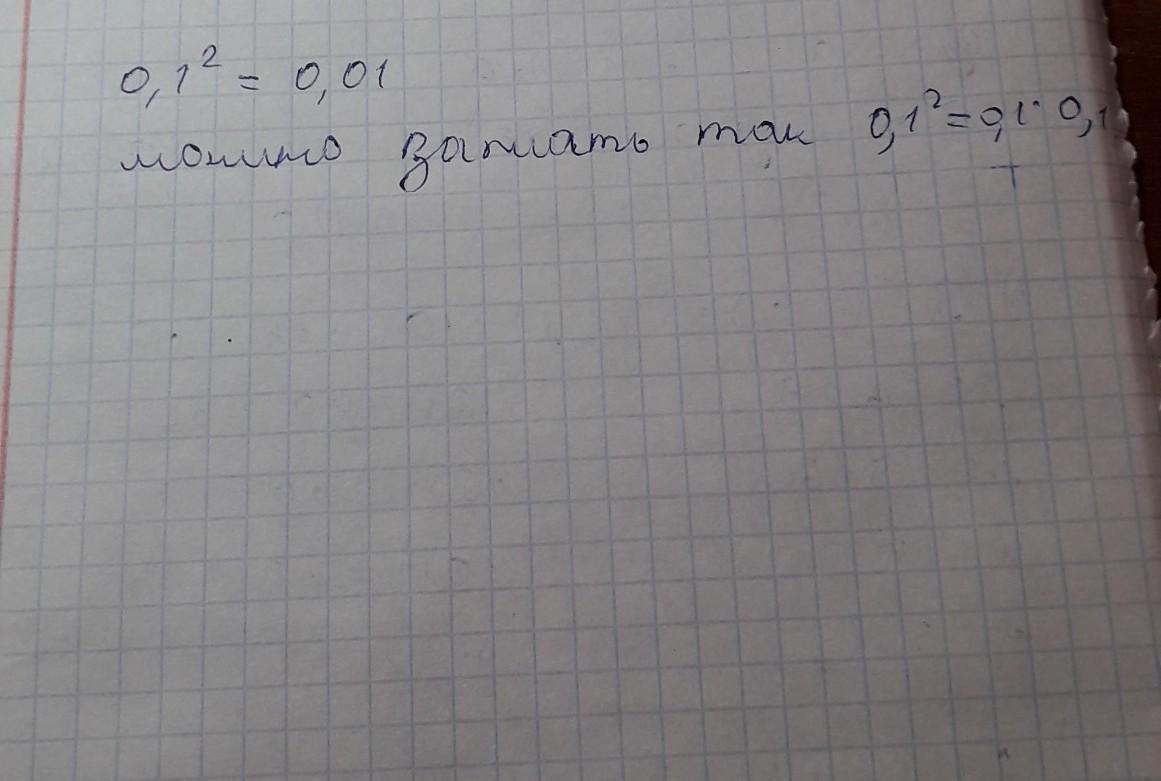 0,1² = 0,01
можно записать так 0,1² = 0,1 · 0,1